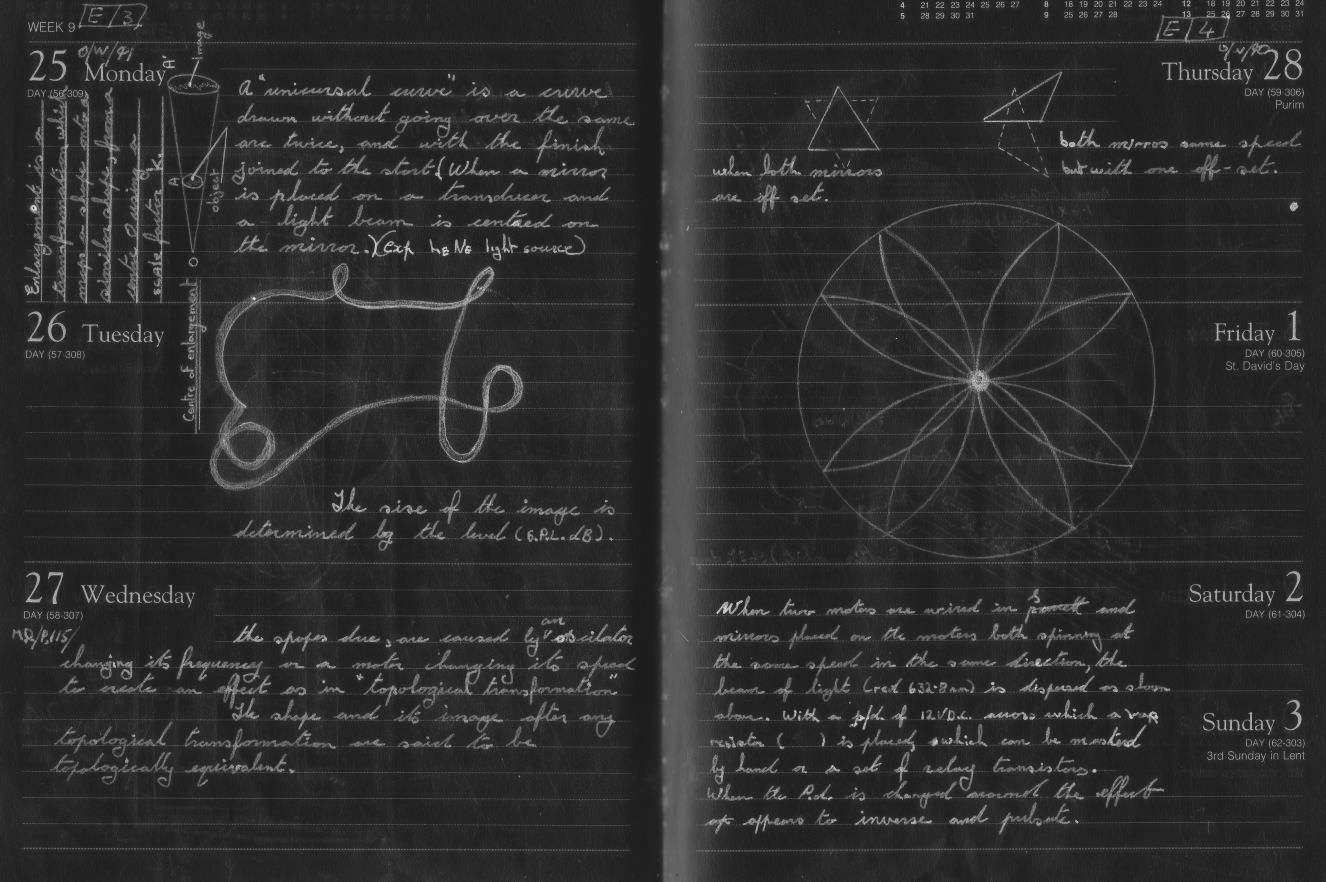 WEEK 9 E/3
O/W/91
25 Monday
DAY (56-309)
Enlargement is a
transformation which
maps a shape onto a
similar shape from a
centre O using a
scale factor K.
A'
image
A
object
O
Centre of enlargement
A "unicursal curve" is a curve
drawn without going over the same
arc twice, and with the finish
joined to the start. (When a mirror
is placed on a transducer and
a light beam is centred on
the mirror.) (Exp HeNe light source)
26 Tuesday
DAY (57-308)
The sise of the image is
determined by the level (S.P.L. dB).
27 Wednesday
DAY (58-307)
the shapes due, are caused by an oscilator
changing its frequency or a motor changing its speed
to create an effect as in "topological transformation"
The shape and its image after any
topological transformation are said to be
topologically equivalent.
4 21 22 23 24 25 26 27 8 18 19 20 21 22 23 24 12 18 19 20 21 22 23 24
5 28 29 30 31 9 25 26 27 28 13 25 26 27 28 29 30 31
E/4
Thursday 28
DAY (59-306)
Purim
both mirros same speed
but with one off-set.
when both mirrors
are off set.
Friday 1
DAY (60-305)
St. David's Day
Saturday 2
DAY (61-304)
When two motors are wired in and
mirrors placed on the motors both spinning at
the same speed in the same direction, the
beam of light (red 632·8nm) is dispersed as shown
above. With a p/d of 12V D.C. across which a
resistor ( ) is placed, which can be
by hand or a set of relay transistors.
When the P.d. is changed the effect
appears to inverse and pulsate.
Sunday 3
DAY (62-303)
3rd Sunday in Lent